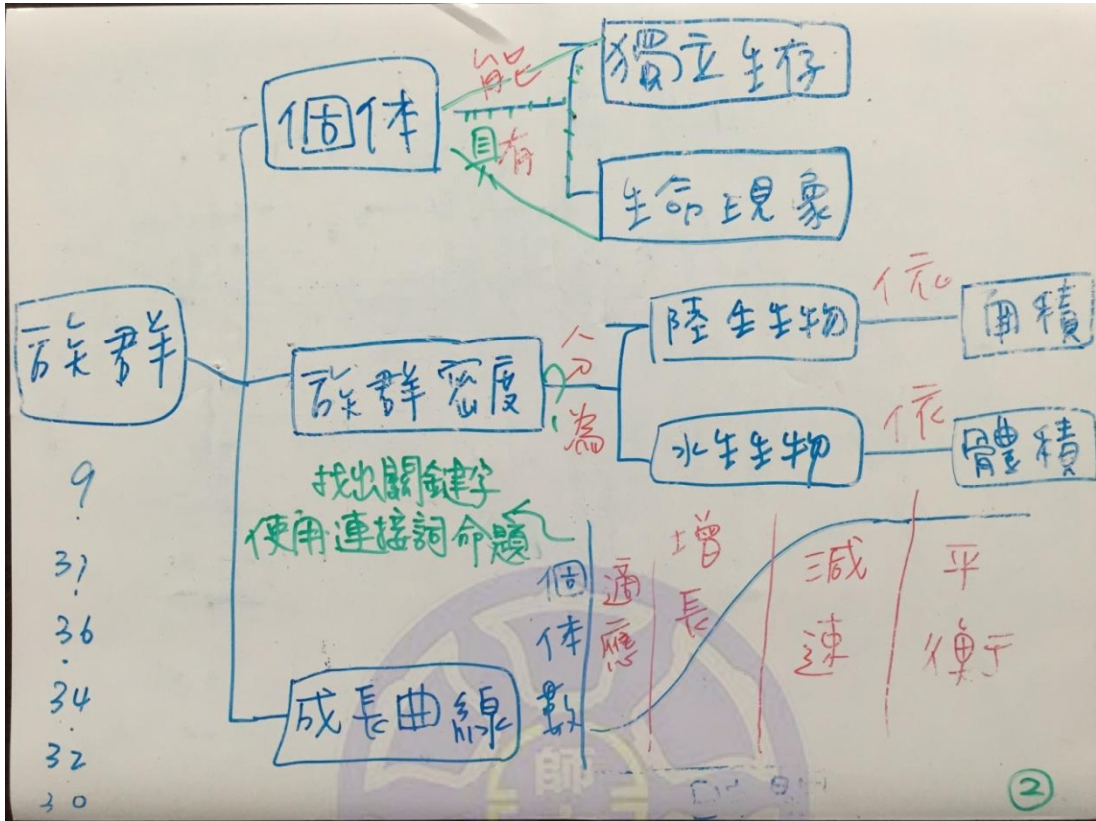 族群
個体
能
具有
獨立生存
生命現象
族群密度
分為
陸生生物
依
面積
水生生物
依
體積
找出關鍵字
使用連接詞命題
成長曲線
個体數
適應
增長
減速
平衡
9
31
36
34
32
30
師
2